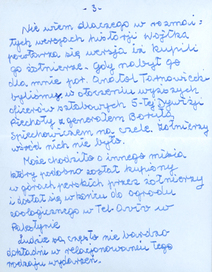 - 3 -
Nie wiem dlaczego w rozmai-
tych wersjach historji Wojtka
powtarza się wersja iż kupili
go żołnierze. Gdy nabył go
dla mnie por. Anatol Tarnowiecki
byliśmy w otoczeniu wyższych
oficerów sztabowych 5-tej Dywizji
Piechoty z generałem Borutą
Spiechowiczem na czele. Żołnierzy
wśród nich nie było.
Może chodziło o innego misia
który podobno został kupiony
w górach perskich przez żołnierzy
i dostał się w końcu do ogrodu
zoologicznego w Tel Aviv w
Palestynie.
Ludzie są często nie bardzo
dokładni w relacjonowaniu tego
rodzaju wydarzeń.